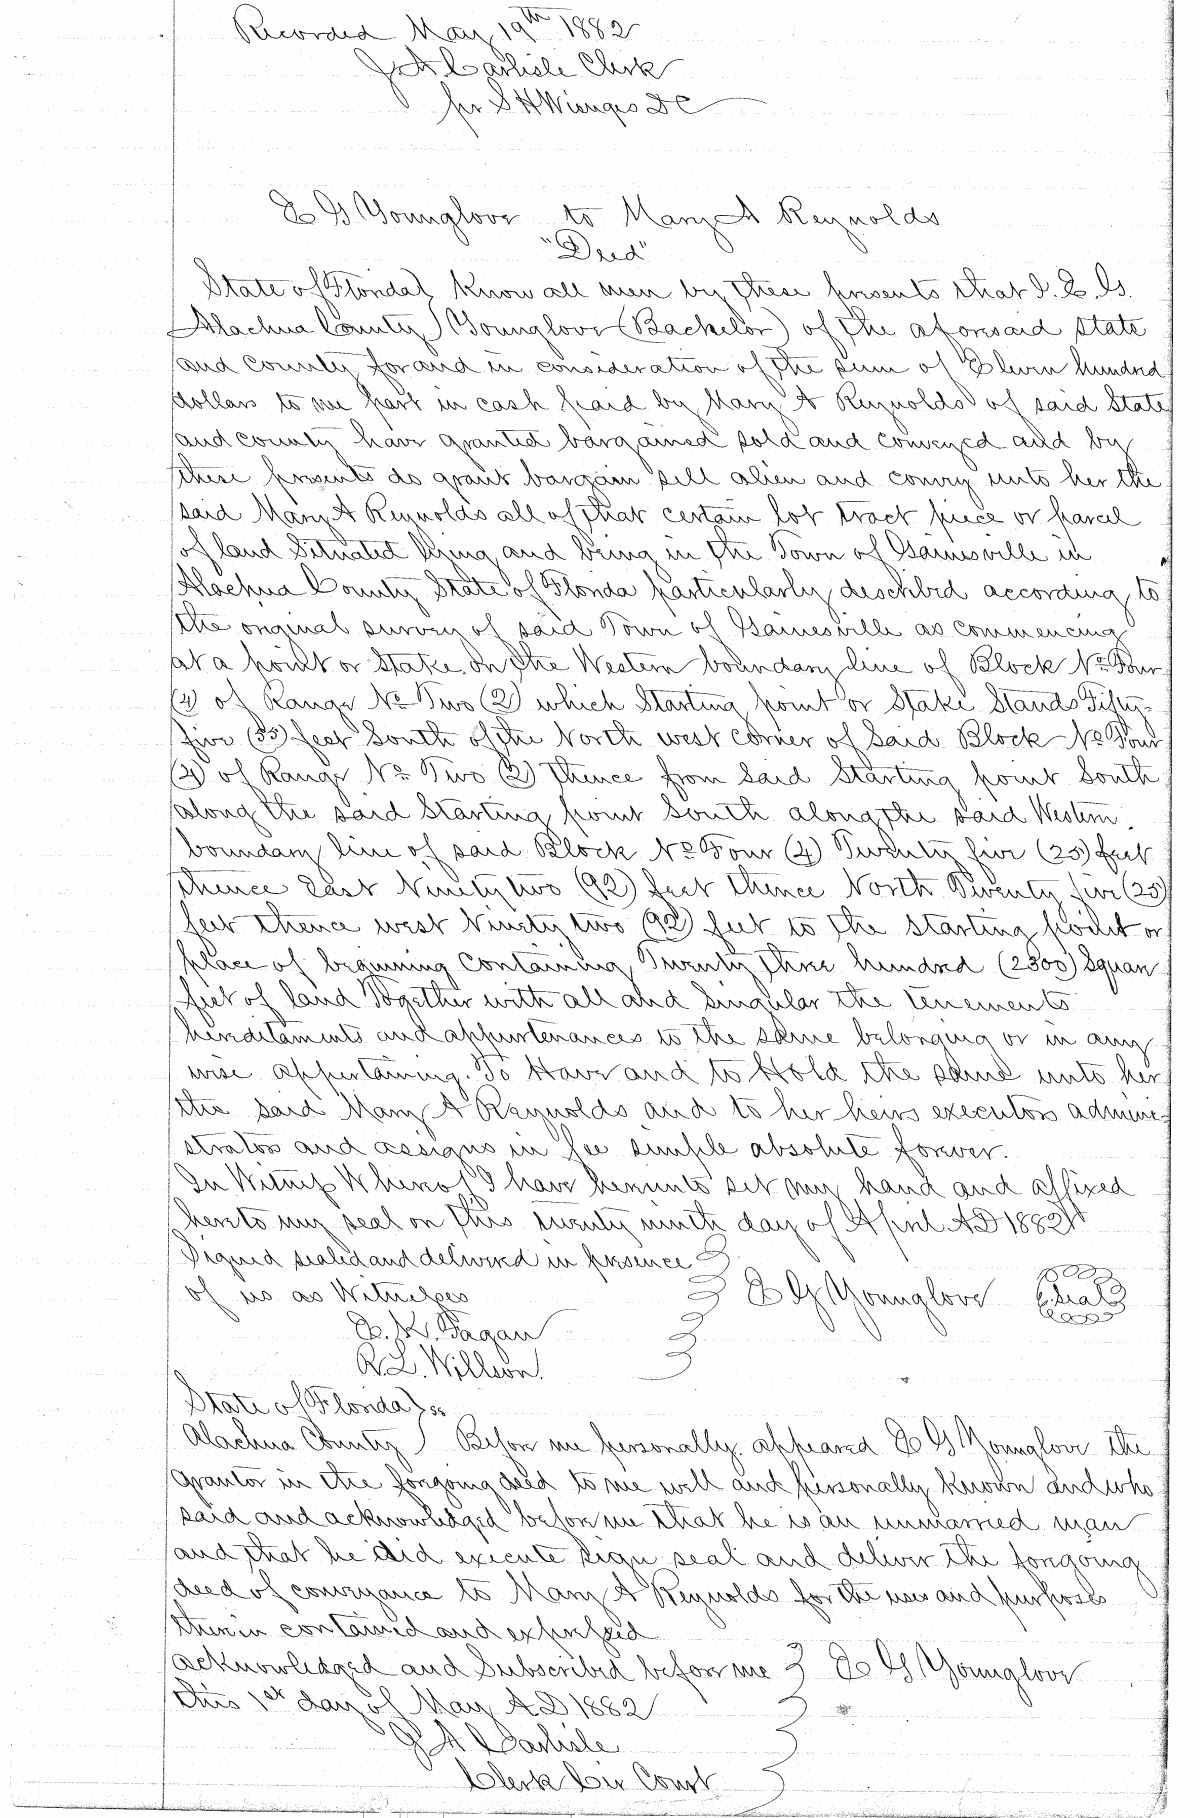 Recorded May 19th 1882
J A Carlisle Clerk
per S H Wienges D C
E G Younglove to Mary A Reynolds
"Deed"
State of Florida } Know all men by these presents that I. E. G.
Alachua County } Younglove (Bachelor) of the aforesaid State
and County for and in consideration of the sum of Eleven hundred
dollars to me part in cash paid by Mary A Reynolds of said State
and county have granted bargained sold and conveyed and by
these presents do grant bargain sell alien and convey unto her the
said Mary A Reynolds all of that certain lot tract piece or parcel
of land Situated lying and being in the Town of Gainesville in
Alachua County State of Florida particularly described according to
the original survey of said Town of Gainesville as commencing
at a point or Stake on the Western boundary line of Block No Four
(4) of Range No Two (2) which Starting point or Stake Stands Fifty-
five (55) feet South of the North west corner of Said Block No Four
(4) of Range No Two (2) Thence from Said Starting point South
along the said Starting point South along the said Western
boundary line of said Block No Four (4) Twenty five (25) feet
thence East Ninety two (92) feet thence North Twenty five (25)
feet thence west Ninety two (92) feet to the starting point or
place of beginning Containing Twenty three hundred (2300) Square
feet of land Together with all and Singular the tenements
hereditaments and appurtenances to the same belonging or in any
wise appertaining. To Have and to Hold the same unto her
the said Mary A Reynolds and to her heirs executors admini-
strators and assigns in fee simple absolute forever.
In Witness Whereof I have hereunto set my hand and affixed
hereto my seal on this twenty ninth day of April AD 1882
Signed sealed and delivered in presence }
of us as Witnesses } E G Younglove (Seal)
E. K. Fagan
R. L. Willson.
State of Florida } ss
Alachua County } Before me personally appeared E G Younglove the
grantor in the foregoing deed to me well and personally known and who
said and acknowledged before me that he is an unmarried man
and that he did execute sign seal and deliver the foregoing
deed of conveyance to Mary A Reynolds for the uses and purposes
therein contained and expressed
acknowledged and Subscribed before me } E G Younglove
this 1st day of May AD 1882
J A Carlisle
Clerk Cir Court